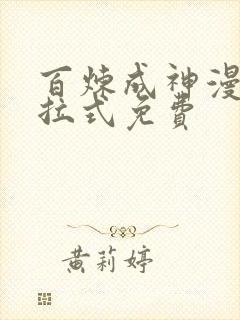 百炼成神漫
拉式免費
黄莉婷